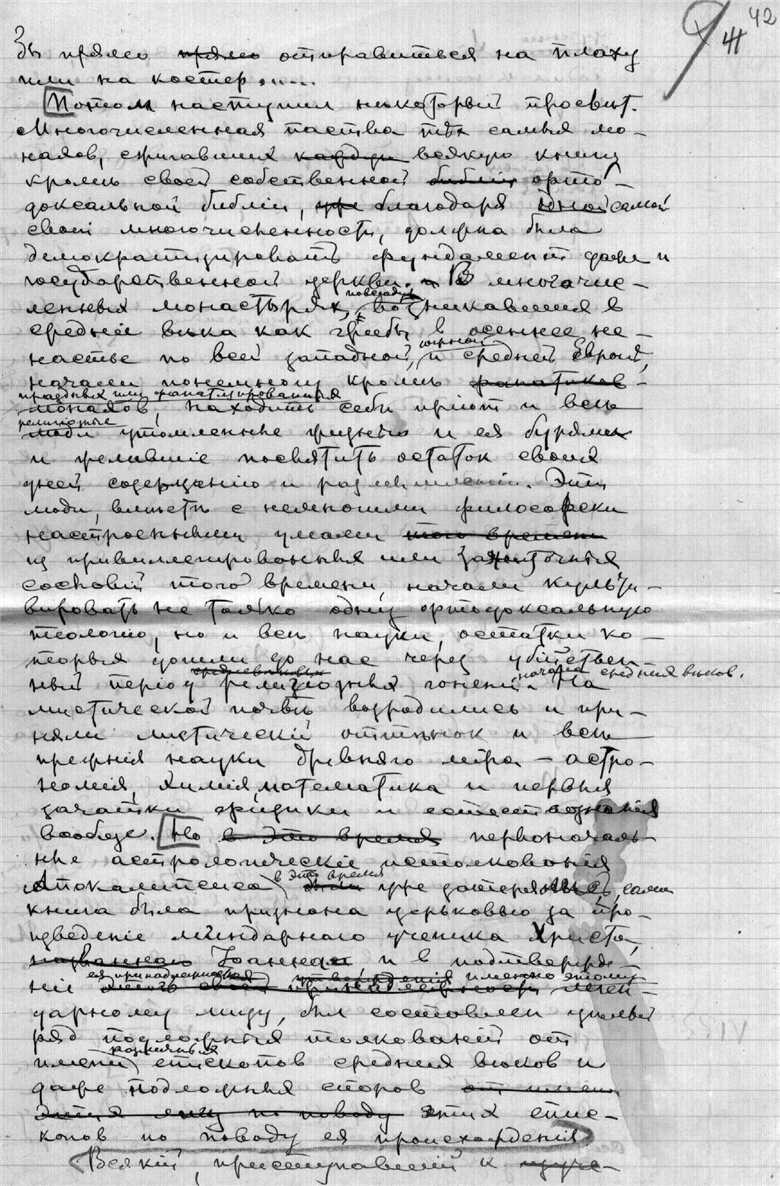 42
бы прямо прямо отправиться на плаху
или на костер.....
Потом наступил некоторый просвет.
Многочисленная паства тех самых мо-
нахов, сжигавших всякую книгу
кроме своей собственной библии орто-
доксальной библии, благодаря одной самой
своей многочисленности, должна была
демократизировать фундамент даже и
государственной церкви. В многочис-
ленных монастырях, повсюду возникавших в
средние века как грибы в осеннее не-
настье по всей западной, южной и средней Европе,
начали понемногу кроме фанатиков
праздных или фанатизированных
монахов, находить себе приют и все
религиозные
люди утомленные жизнью и ея бурями
и желавшие посвятить остаток своих
дней созерцанию и размышлению. Эти
люди, вместе с немногими философски
настроенными умами того времени
из привиллегированных или зажиточных
сословий того времени, начали культи-
вировать не только одну ортодоксальную
теологию, но и все науки, остатки ко-
торых дошли до нас через убийствен-
ный период религиозных гонений начала средних веков. На
мистической почве возродились и при-
няли мистический оттенок и все
прежния науки древняго мира – астро-
номия, химия, математика и первыя
зачатки физики и естествознания
вообще. Но в это время первоначаль-
ные астрологические истолкования
Апокалипсиса в это время были уже потеряны, сама
книга была признана церковью за про-
изведение легендарного ученика Христа,
названнаго Иоанном и в подтвержде-
нии ея принадлежности именно этому леген-
дарному лицу, был составлен целый
ряд подложных толкований от
имени различных епископов средних веков и
даже подложных споров от имени
этих лиц по поводу этих епис-
копов по поводу ея происхождения.
Всякий, приступавший к изуче-